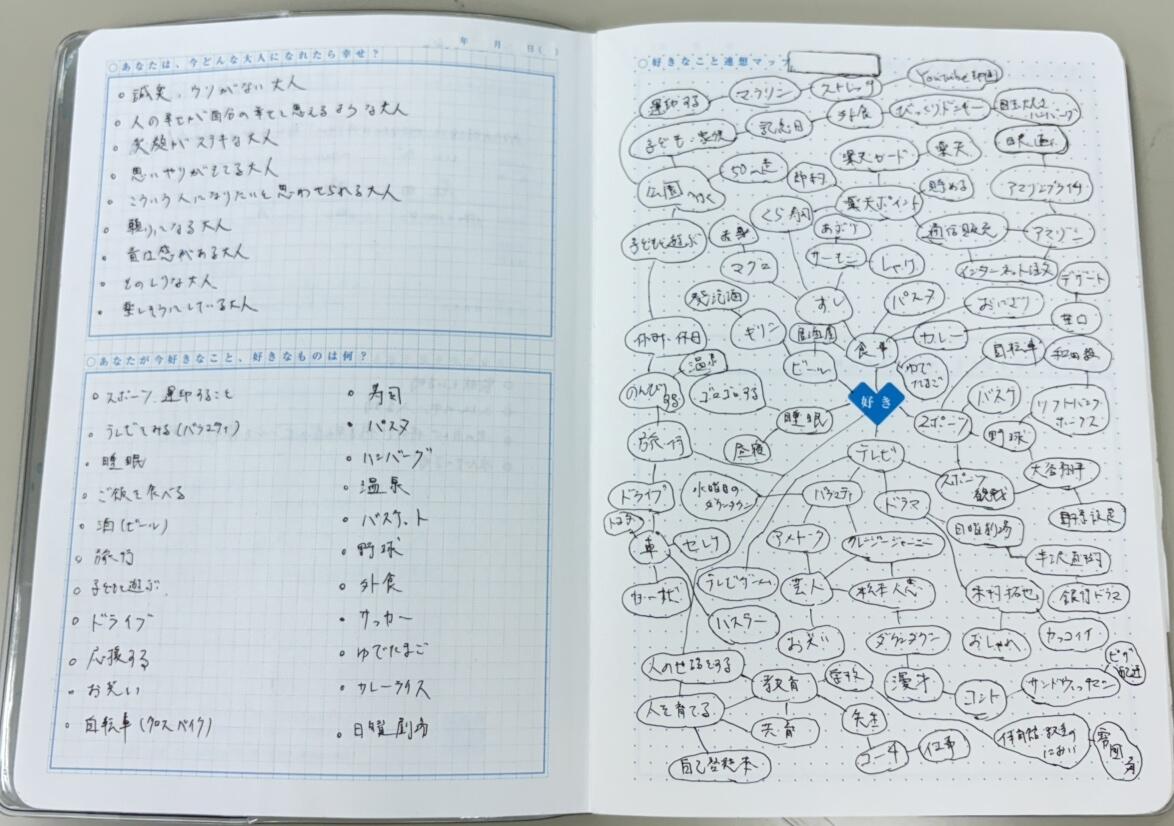 年 月 日( )
○あなたは、今どんな大人になれたら幸せ？
誠実、ウソがない大人
人の幸せが自分の幸せと思えるような大人
笑顔がステキな大人
思いやりがもてる大人
こういう人になりたいと思わせられる大人
頼りになる大人
責任感がある大人
ものしりな大人
楽しそうにしている大人
○あなたが今好きなこと、好きなものは何？
スポーツ、運動すること
テレビをみる(バラエティ)
睡眠
ご飯を食べる
酒(ビール)
旅行
子どもと遊ぶ
ドライブ
応援する
お笑い
自転車(クロスバイク)
寿司
パスタ
ハンバーグ
温泉
バスケット
野球
外食
サッカー
ゆでたまご
カレーライス
日曜劇場
○好きなこと連想マップ
運動する
マラソン
ストレッチ
YouTube動画
子ども・家族
記念日
外食
びっくりドンキー
公園へ行く
50m走
節約
楽天カード
楽天
映画
子どもと遊ぶ
くら寿司
楽天ポイント
貯める
アマゾンプライム
赤身
あぶり
通信販売
アマゾン
マグロ
サーモン
しゃり
インターネット注文
デザート
発泡酒
すし
パスタ
おにぎり
甘口
休み時・休日
キリン
居酒屋
食事
カレー
自転車
和田毅
温泉
ビール
ゆでたまご
のんびりする
ゴロゴロする
好き
バスケ
ソフトバンクホークス
睡眠
スポーツ
野球
旅行
昼寝
テレビ
大谷翔平
ドライブ
水曜日のダウンタウン
バラエティ
ドラマ
スポーツ観戦
トヨタ
日曜劇場
車
セレナ
アメトーク
クレイジージャーニー
半沢直樹
テレビゲーム
芸人
松本人志
木村拓也
銀行ドラマ
お笑い
ダウンタウン
おしゃれ
カッコイイ
人のせ話をする
教育
学校
漫才
コント
サンドウィッチマン
人を育てる
共育
先生
コーチ
仕事